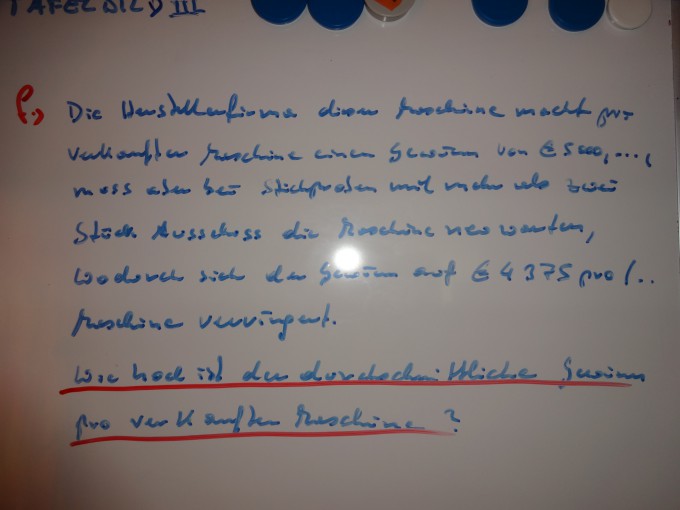 TAFELBILD III
f.)
Die Herstellerfirma dieser Maschine macht pro
verkaufter Maschine einen Gewinn von € 5000,...,
muss aber bei Stichproben mit mehr als zwei
Stück Ausschuss die Maschine neu warten,
wodurch sich der Gewinn auf € 4375 pro /..
Maschine verringert.
Wie hoch ist der durchschnittliche Gewinn
pro verkaufter Maschine?